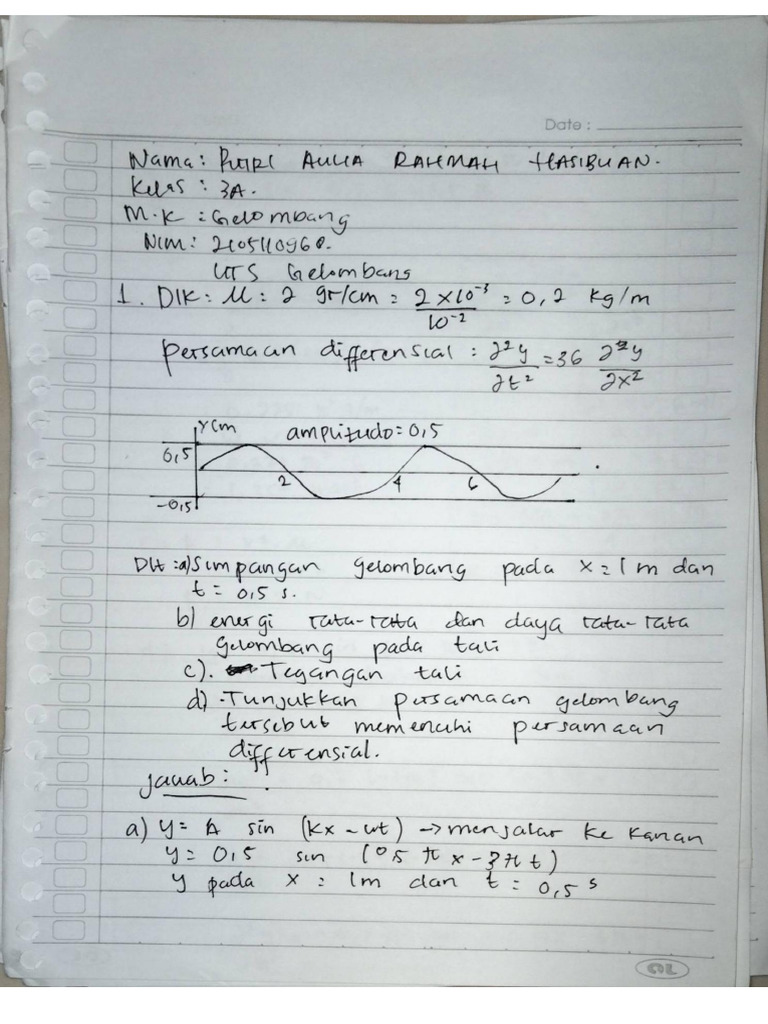 Date :
Nama: PUTRI AULIA RAHMAH HASIBUAN.
Kelas : 3A.
M.K : Gelombang
NIM: 2105110960.
UTS Gelombang
1. DIK: μ: 2 gr/cm = 2 × 10⁻³ / 10⁻² = 0,2 kg/m
persamaan differensial : ∂²y/∂t² = 36 ∂²y/∂x²
Y Cm amplitudo = 0,5
0,5
2 4 6
-0,5
Dit : a) Simpangan gelombang pada x = 1 m dan
t = 0,5 s.
b) energi rata-rata dan daya rata-rata
gelombang pada tali
c). Tegangan tali
d) . Tunjukkan persamaan gelombang
tersebut memenuhi persamaan
differensial.
jawab :
a) y = A sin (kx - wt) → menjalar ke kanan
y = 0,5 sin (0,5 π x - 3π t)
y pada x = 1m dan t = 0,5 s
OL